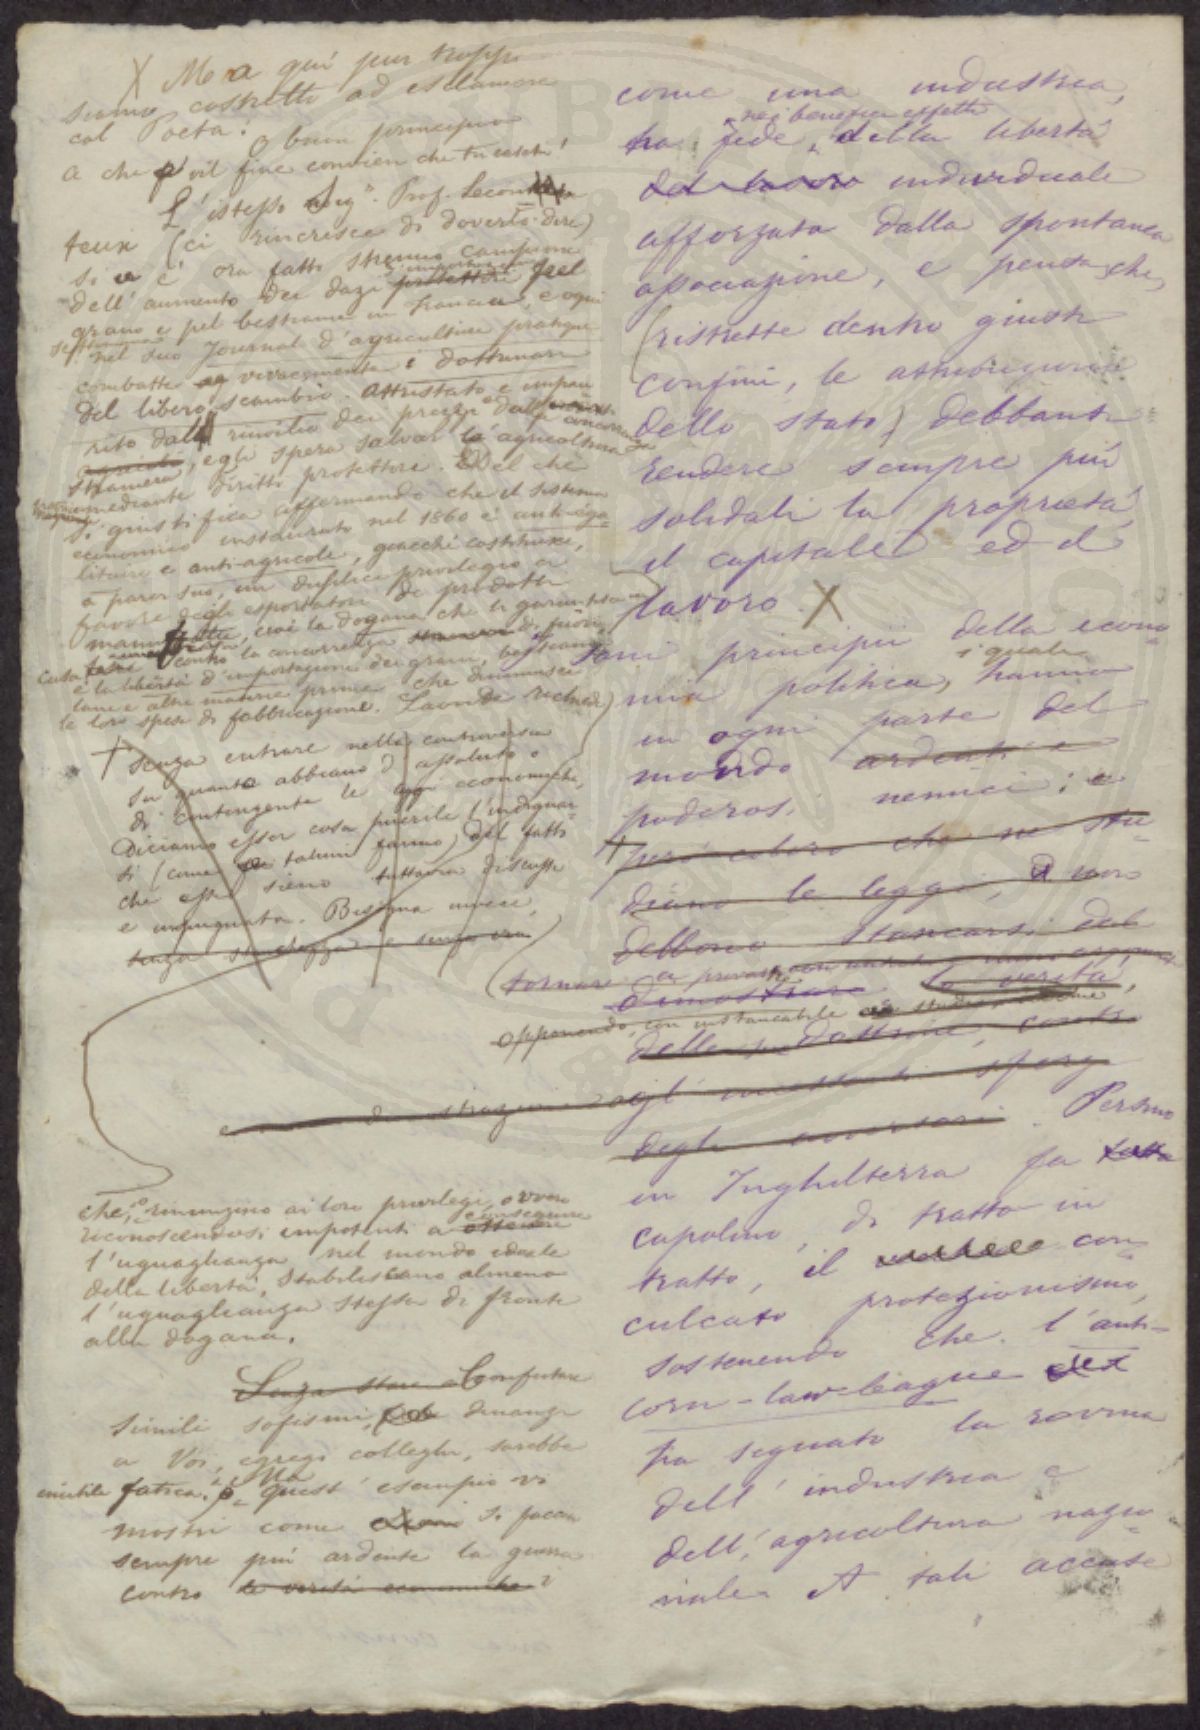 X Ma qui pur troppo
siamo costretti ad esclamare
col Poeta:
O buon principio
a che vil fine convien che tu caschi!
L'istesso Sig.r Prof. Lecou
teux (ci rincresce di doverlo dire)
si è ora fatto strenuo campione
dell'aumento dei dazi protettori pel
grano e pel bestiame in Francia, e ogni
settimana
nel suo Journal d'agriculture pratique
combatte vivacemente i dottrinari
del libero scambio. Attristato e impau
rito dal rinvilio dei prezzi e dalla concorrenza
straniera, egli spera salvar l'agricoltura
mediante diritti protettori. Del che
si giustifica affermando che il sistema
economico instaurato nel 1860 è anti-ega-
litaire e anti-agricole, giacchè costituisce,
a parer suo, un duplice privilegio a
favore degli esportatori di prodotti
manufatti, cioè la dogana che li garantisce in
casa contro la concorrenza di fuori,
e la libertà d'importazione dei grani, bestiami
lane e altre materie prime che diminuisce
le loro spese di fabbricazione. Laonde richiede
† Senza entrare nella controversia
su quanto abbiano d'assoluto o
di contingente le leggi economiche,
diciamo esser cosa puerile l'indignar
si (come taluni fanno) del fatto
che esse sieno tuttavia discusse
e impugnate. Bisogna invece,
senza stanchezza e senza ira
che, o rinunzino ai loro privilegi, ovvero
riconoscendosi impotenti a conseguire
ottenere
l'uguaglianza nel mondo ideale
della libertà, stabiliscano almeno
l'uguaglianza stessa di fronte
alla dogana.
Senza stare a Confutare
simili sofismi, dinanzi
a Voi, egregi colleghi, sarebbe
inutile fatica. Ma quest'esempio vi
mostri come si faccia
sempre più ardente la guerra
contro le verità economiche i
come una industria,
nei benefici effetti
ha fede, della libertà
del lavoro individuale
afforzata dalla spontanea
associazione, e pensa che,
(ristrette dentro giusti
confini, le attribuzioni
dello stato) debbansi
rendere sempre più
solidali la proprietà,
il capitale ed il
lavoro. X
sani principii della econo-
i quali
mia politica, hanno
in ogni parte del
mondo ardenti e
poderosi nemici; e
† però coloro che ne stu-
diano le leggi, non
debbono stancarsi dal
tornare a provare
dimostrare la verità,
opponendo, con instancabile studio,
delle dottrine, contro
agl' incessanti sforzi
degli avversari. Persino
in Inghilterra fa
capolino, di tratto in
tratto, il con-
culcato protezionismo,
sostenendo che l'anti-
corn-law-league
ha segnato la rovina
dell'industria e
dell'agricoltura nazio-
nale. A tali accuse